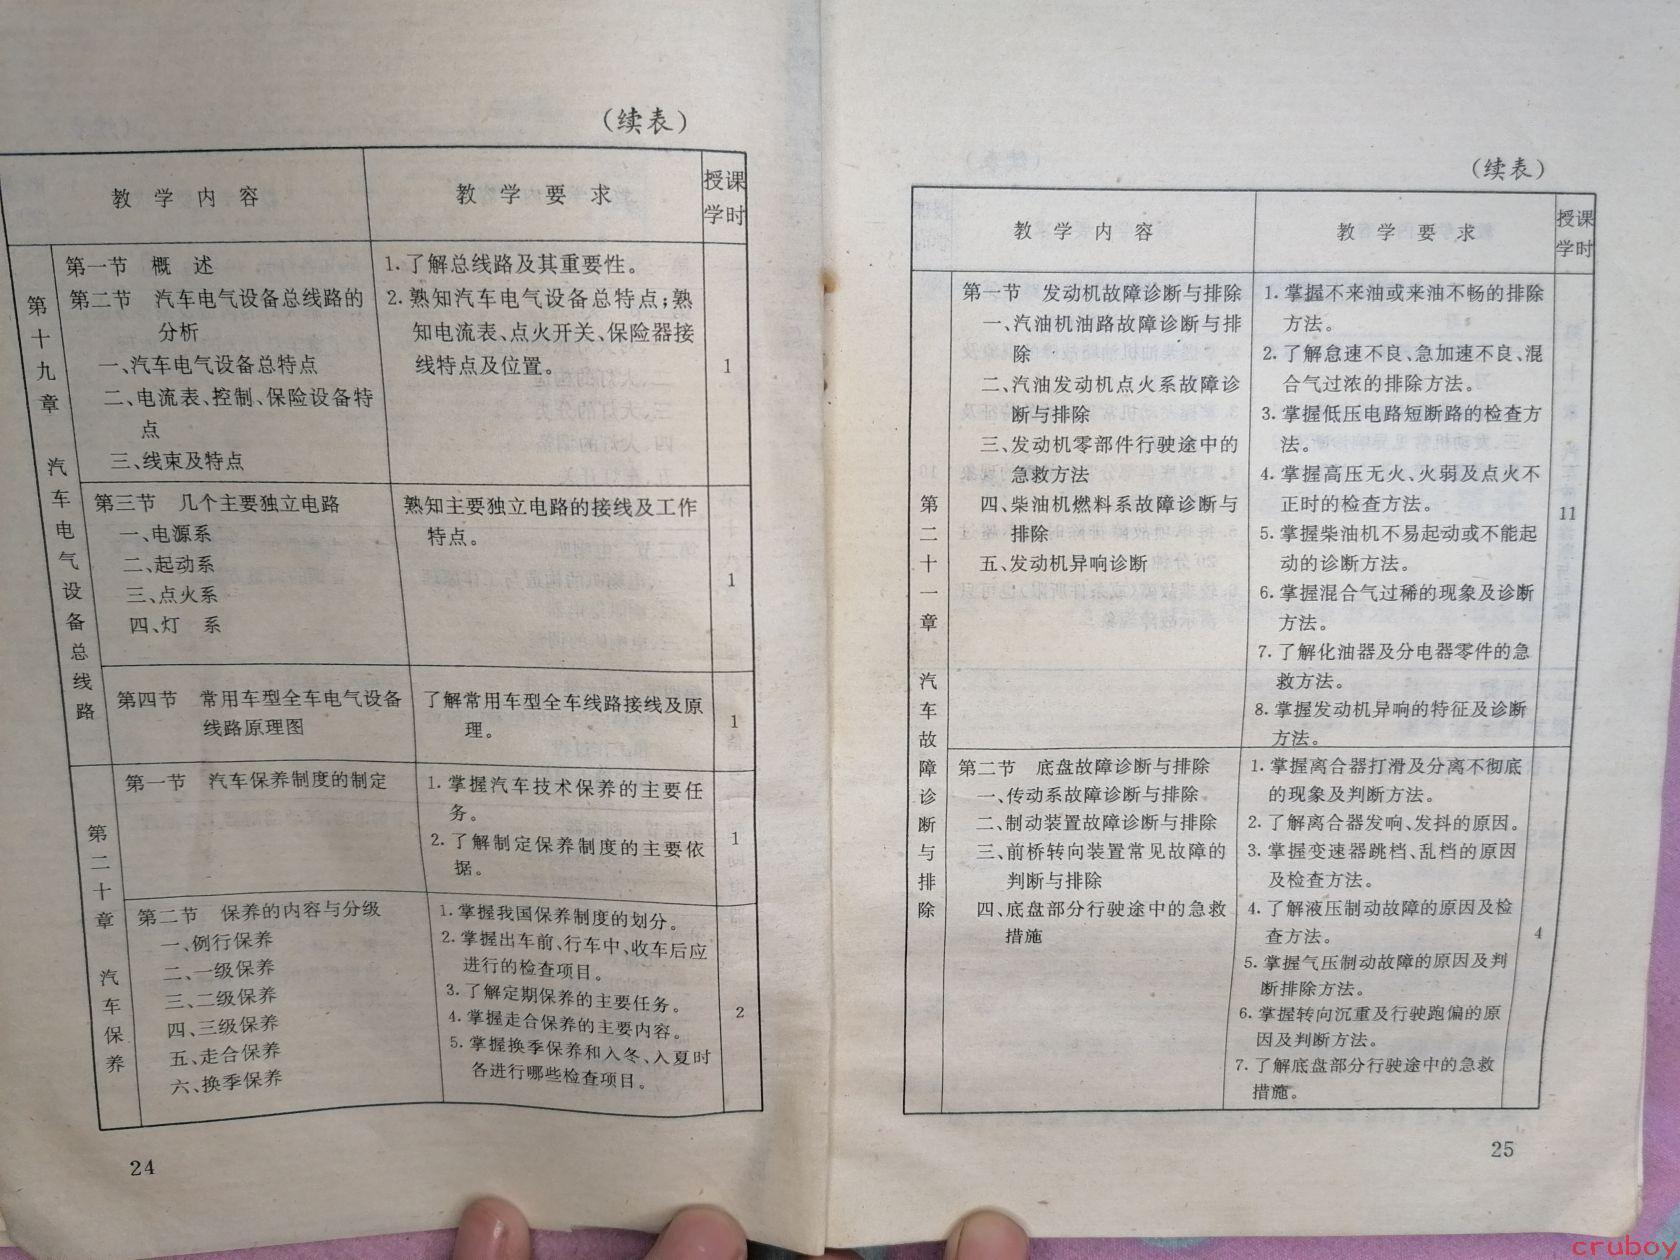 (续表)
教 学 内 容
教 学 要 求
授课
学时
第十九章 汽车电气设备总线路
第一节 概 述
第二节 汽车电气设备总线路的
分析
一、汽车电气设备总特点
二、电流表、控制、保险设备特
点
三、线束及特点
1.了解总线路及其重要性。
2.熟知汽车电气设备总特点;熟
知电流表、点火开关、保险器接
线特点及位置。
1
第三节 几个主要独立电路
一、电源系
二、起动系
三、点火系
四、灯 系
熟知主要独立电路的接线及工作
特点。
1
第四节 常用车型全车电气设备
线路原理图
了解常用车型全车线路接线及原
理。
1
第二十章 汽车保养
第一节 汽车保养制度的制定
1.掌握汽车技术保养的主要任
务。
2.了解制定保养制度的主要依
据。
1
第二节 保养的内容与分级
一、例行保养
二、一级保养
三、二级保养
四、三级保养
五、走合保养
六、换季保养
1.掌握我国保养制度的划分。
2.掌握出车前、行车中、收车后应
进行的检查项目。
3.了解定期保养的主要任务。
4.掌握走合保养的主要内容。
5.掌握换季保养和入冬、入夏时
各进行哪些检查项目。
2
24
(续表)
教 学 内 容
教 学 要 求
授课
学时
第二十一章 汽车故障诊断与排除
第一节 发动机故障诊断与排除
一、汽油机油路故障诊断与排
除
二、汽油发动机点火系故障诊
断与排除
三、发动机零部件行驶途中的
急救方法
四、柴油机燃料系故障诊断与
排除
五、发动机异响诊断
1.掌握不来油或来油不畅的排除
方法。
2.了解怠速不良、急加速不良、混
合气过浓的排除方法。
3.掌握低压电路短断路的检查方
法。
4.掌握高压无火、火弱及点火不
正时的检查方法。
5.掌握柴油机不易起动或不能起
动的诊断方法。
6.掌握混合气过稀的现象及诊断
方法。
7.了解化油器及分电器零件的急
救方法。
8.掌握发动机异响的特征及诊断
方法。
11
第二节 底盘故障诊断与排除
一、传动系故障诊断与排除
二、制动装置故障诊断与排除
三、前桥转向装置常见故障的
判断与排除
四、底盘部分行驶途中的急救
措施
1.掌握离合器打滑及分离不彻底
的现象及判断方法。
2.了解离合器发响、发抖的原因。
3.掌握变速器跳档、乱档的原因
及检查方法。
4.了解液压制动故障的原因及检
查方法。
5.掌握气压制动故障的原因及判
断排除方法。
6.掌握转向沉重及行驶跑偏的原
因及判断方法。
7.了解底盘部分行驶途中的急救
措施。
4
25
cruboy